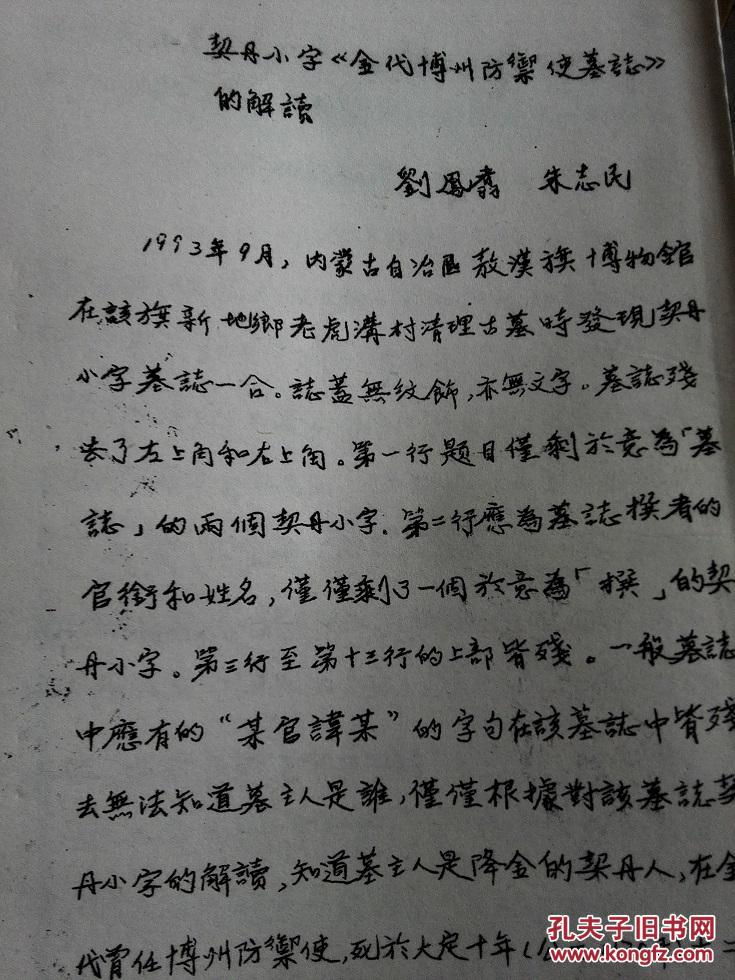 契丹小字《金代博州防禦使墓誌》
的解讀
劉鳳翥 朱志民
1993年9月，内蒙古自治區敖漢旗博物館
在該旗新地鄉老虎溝村清理古墓時發現契丹
小字墓誌一合。誌蓋無紋飾，亦無文字。墓誌殘
去了左上角和右上角。第一行題目僅剩於意為「墓
誌」的兩個契丹小字。第二行應為墓誌撰者的
官銜和姓名，僅僅剩了一個於意為「撰」的契
丹小字。第三行至第十三行的上部皆殘。一般墓誌
中應有的“某官諱某”的字句在該墓誌中皆殘
去無法知道墓主人是誰，僅僅根據對該墓誌契
丹小字的解讀，知道墓主人是降金的契丹人，在金
代曾任博州防禦使，死於大定十年（公
孔夫子旧书网
KONGFZ.COM